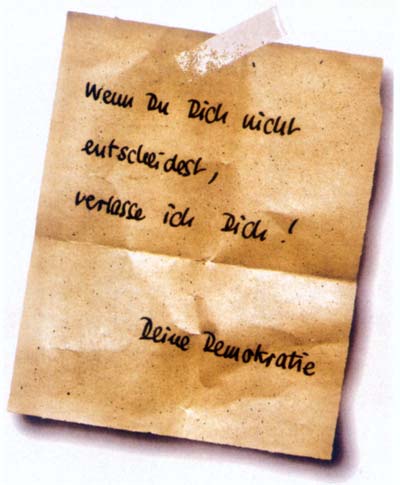 Wenn Du Dich nicht
entscheidest,
verlasse ich Dich!
Deine Demokratie